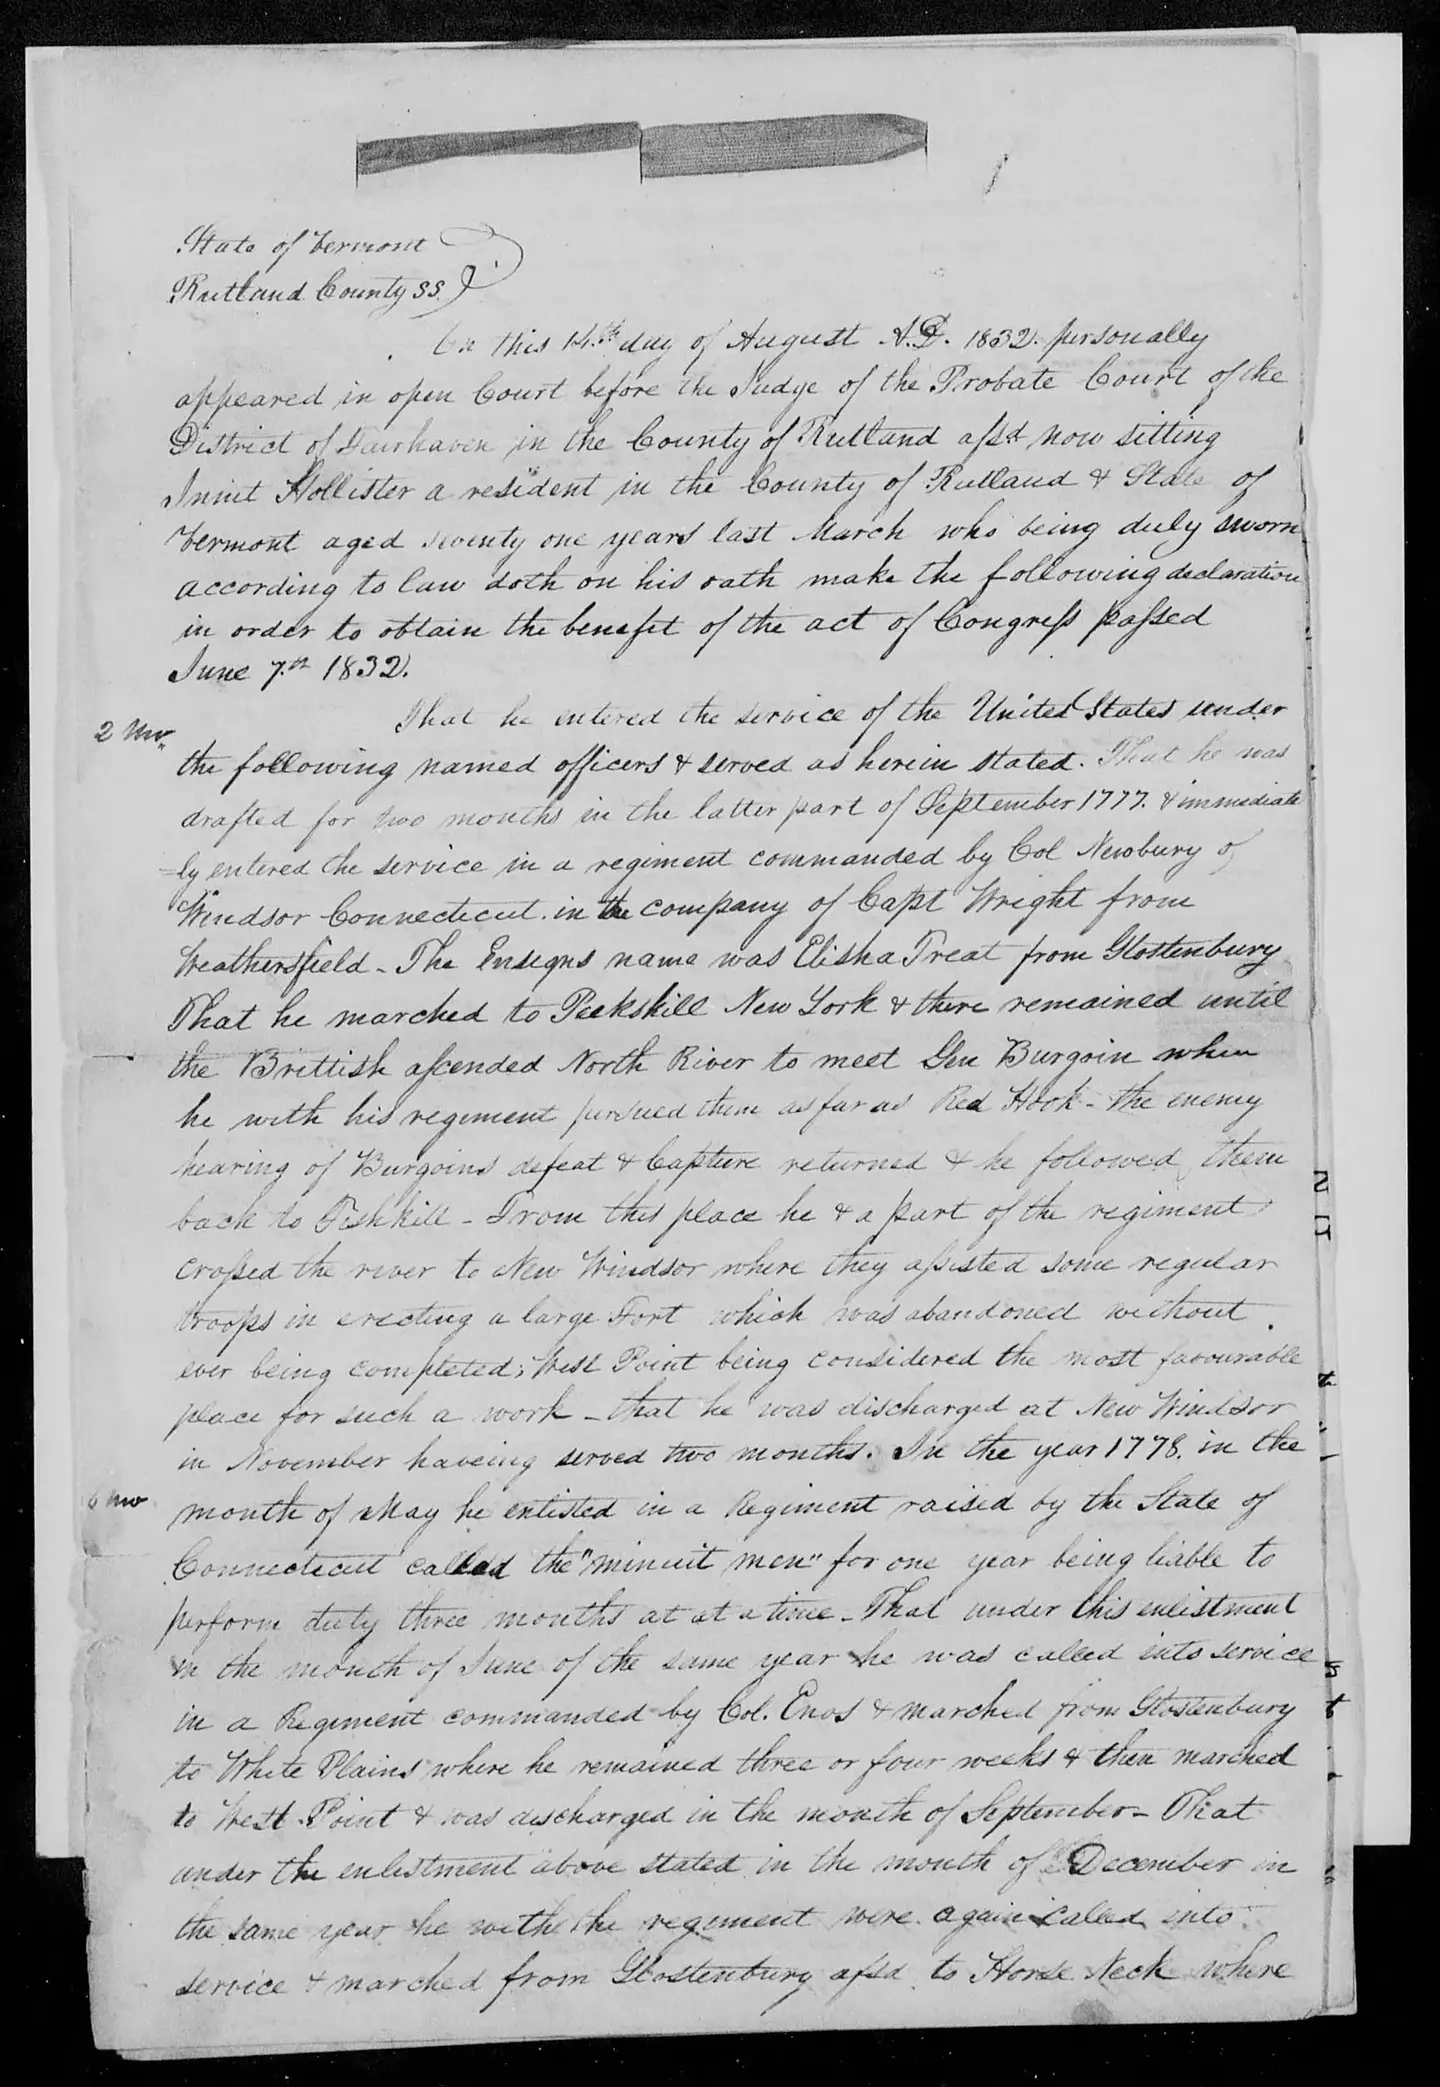 State of Vermont
Rutland County SS.
On this 14.th day of August A.D. 1832. personally
appeared in open Court before the Judge of the Probate Court of the
District of Fairhaven in the County of Rutland afsd now sitting
Innit Hollister a resident in the County of Rutland & State of
Vermont aged seventy one years last March who being duly sworn
according to law doth on his oath make the following declaration
in order to obtain the benefit of the act of Congress passed
June 7.th 1832.
2 Mo
That he entered the service of the United States under
the following named officers & served as herein stated. That he was
drafted for two months in the latter part of September 1777. & immediate
=ly entered the service in a regiment commanded by Col Newbury of
Windsor Connecticut. in the company of Capt Wright from
Weathersfield - The Ensigns name was Elisha Treat from Glostenbury
That he marched to Peekskill New York & there remained until
the Brittish ascended North River to meet Gen Burgoin when
he with his regiment pursued them as far as Red Hook - the enemy
hearing of Burgoins defeat & Capture returned & he followed them
back to Fishkill - From this place he & a part of the regiment
crossed the river to New Windsor where they assisted some regular
troops in erecting a large Fort which was abandoned without
ever being completed; West Point being considered the most favourable
place for such a work - that he was discharged at New Windsor
in November haveing served two months. In the year 1778. in the
6 mo
month of May he enlisted in a Regiment raised by the State of
Connecticut called the "minuit men" for one year being liable to
perform duty three months at at a time - That under this enlistment
in the month of June of the same year he was called into service
in a Regiment commanded by Col. Enos & marched from Glostenbury
to White Plains where he remained three or four weeks & then marched
to West Point & was discharged in the month of September - That
under the enlistment above stated in the month of December in
the same year he with the regiment were again called into
service & marched from Glostenbury afsd to Horse Neck where